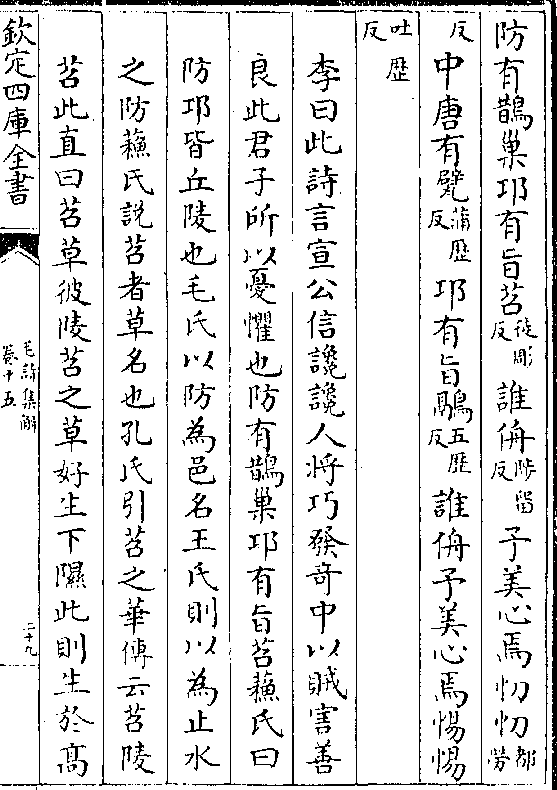 防有鵲巢邛有旨苕徒彫反誰侜陟留反予美心焉忉忉都勞
反中唐有甓蒲歴反邛有旨鷊五歴反誰侜予美心焉惕惕
吐歴反
李曰此詩言宣公信讒讒人將巧發竒中以賊害善
良此君子所以憂懼也防有鵲巢邛有旨苕蘓氏曰
防邛皆丘陵也毛氏以防為邑名王氏則以為止水
之防蘓氏說苕者草名也孔氏引苕之華傳云苕陵
苕此直曰苕草彼陵苕之草好生下隰此則生於髙
欽定四庫全書
毛詩集解
卷十五
二十九